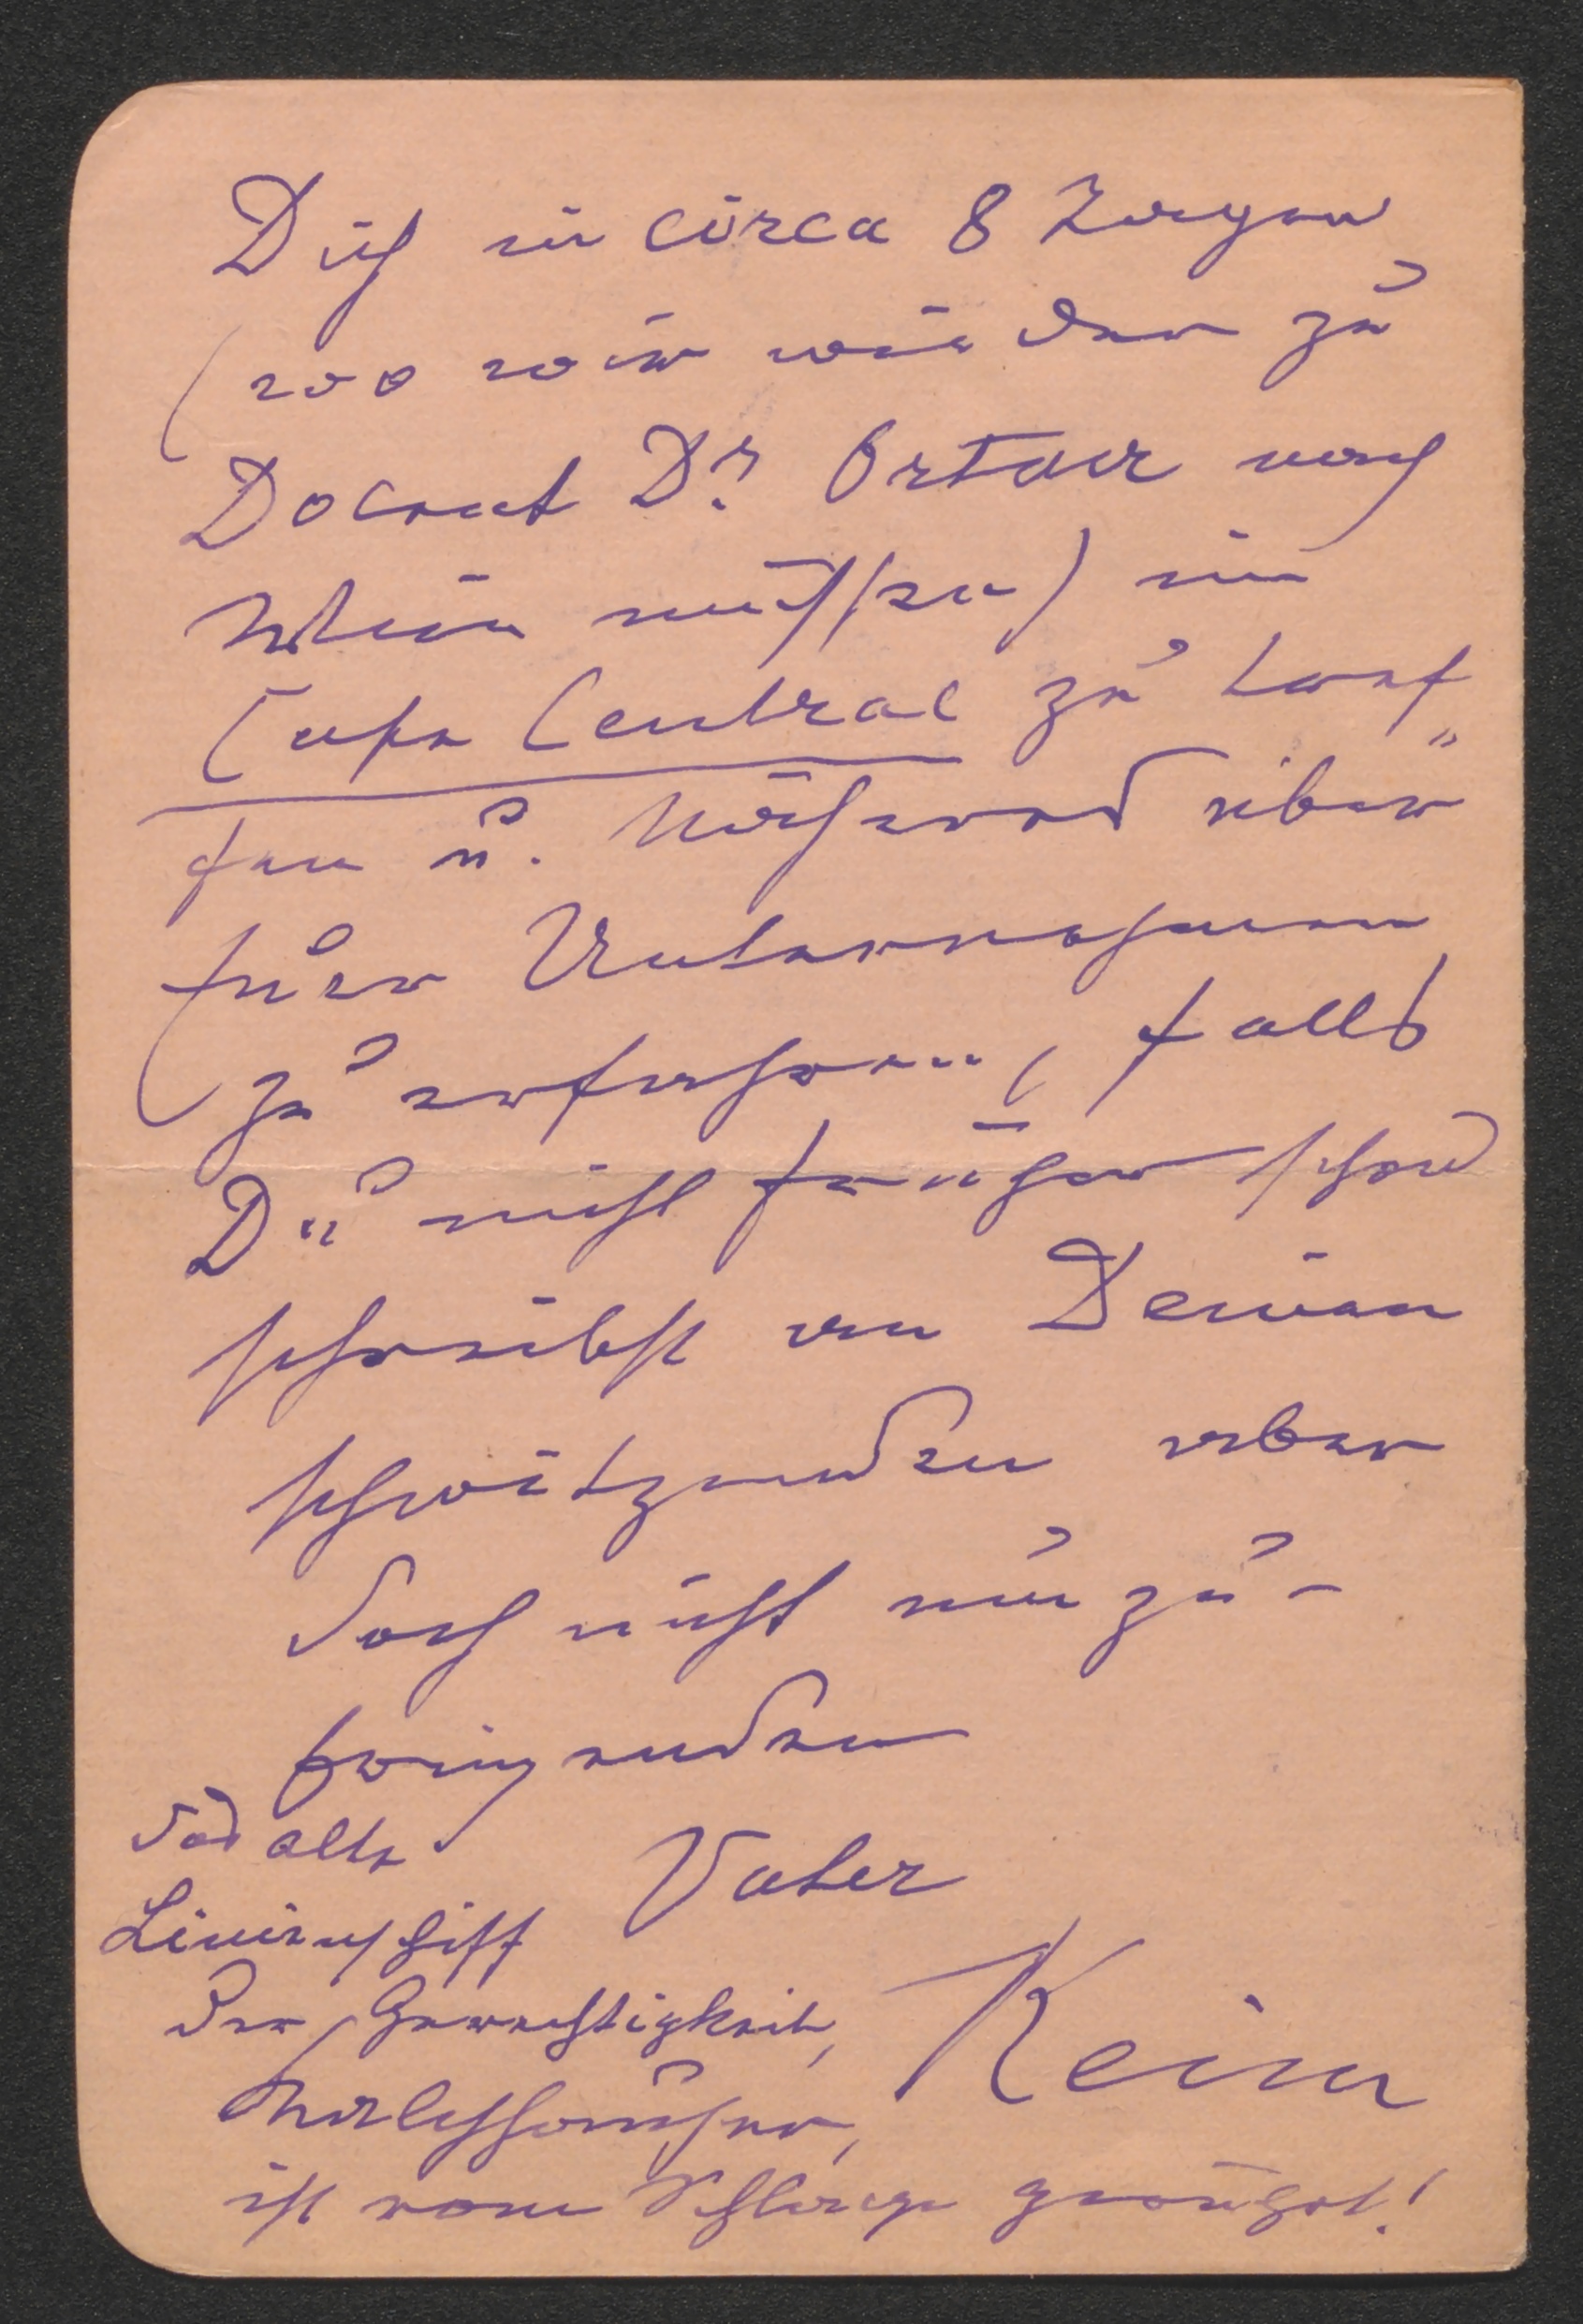 Dich in circa 8 Tagen
(wo wir wieder zu
Docent Dr. Ortner nach
Wien müssen) im
Cafe Central zu tref„
fen u. Näheres über
fuer Unternehmen
zu erfahren, falls
Du nicht früher schon
schreibst an Deinen
schwitzenden aber
doch nicht umzu-
bringenden
Vater
Keim
das alte
Linienschiff
der Gerechtigkeit,
ist vom Schlage gerührt!